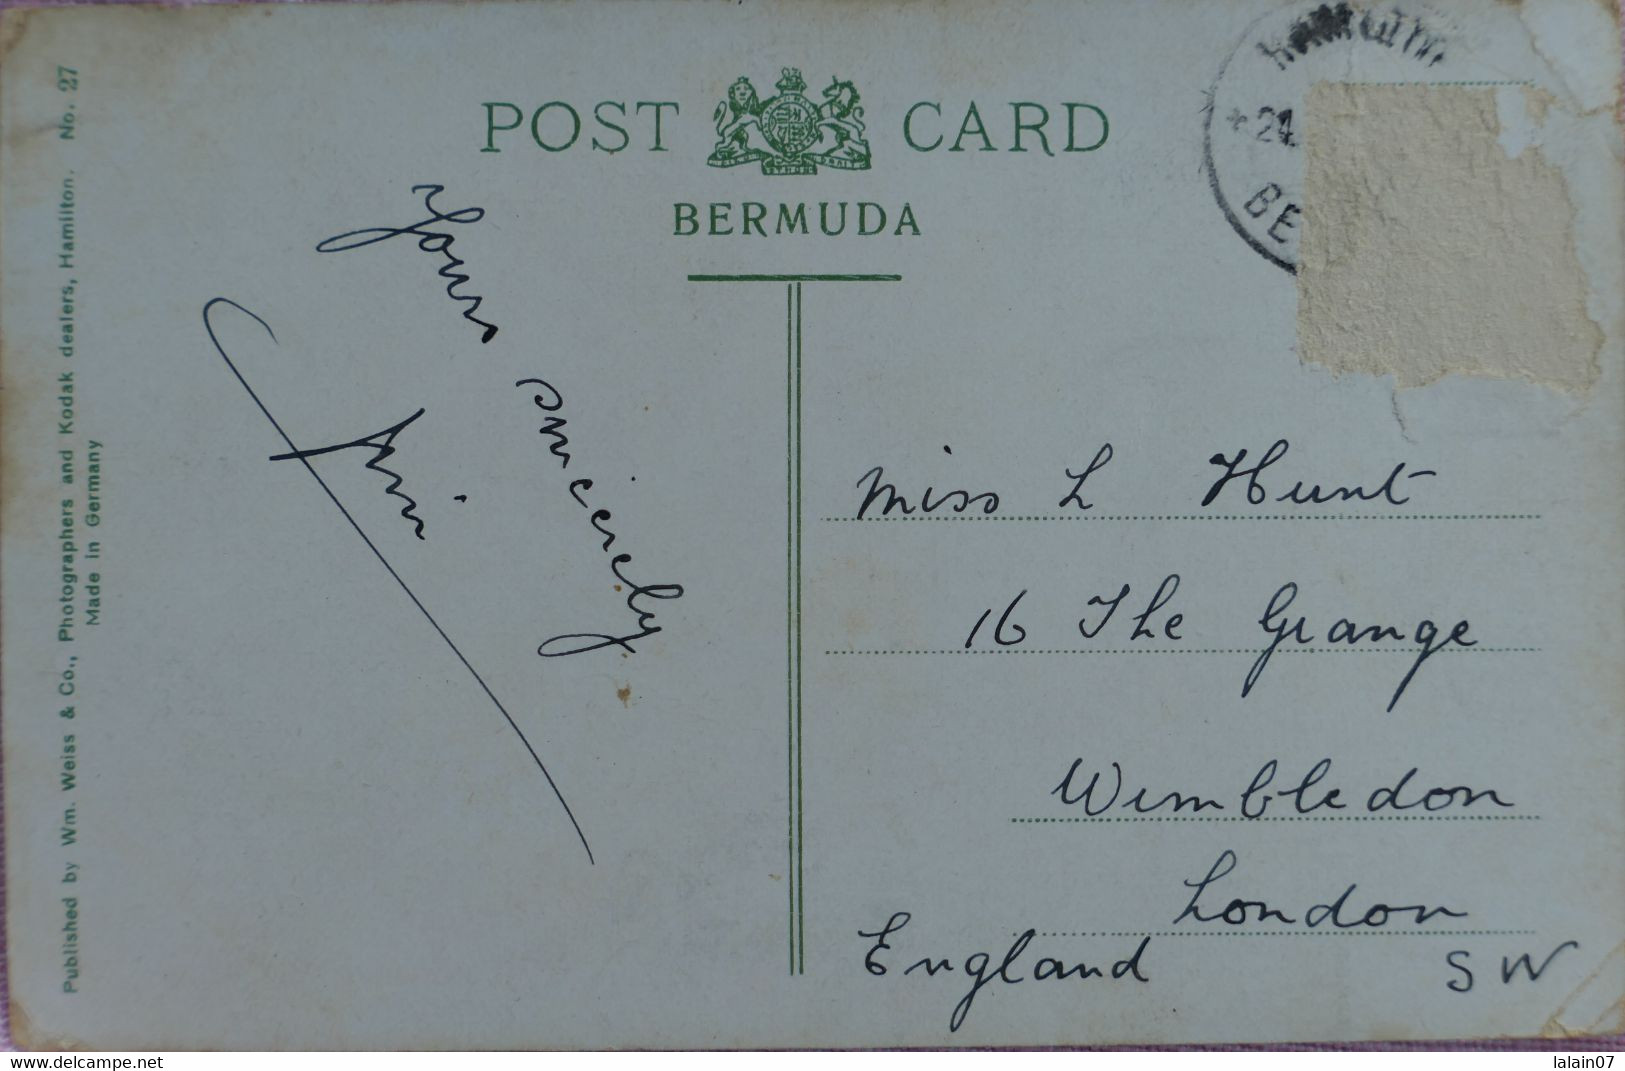 POST CARD
BERMUDA
Published by Wm. Weiss & Co., Photographers and Kodak dealers, Hamilton. No. 27
Made in Germany
Yours sincerely
BE
Miss L Hunt
16 The Grange
Wimbledon
London
England SW
delcampe.net
lalain07